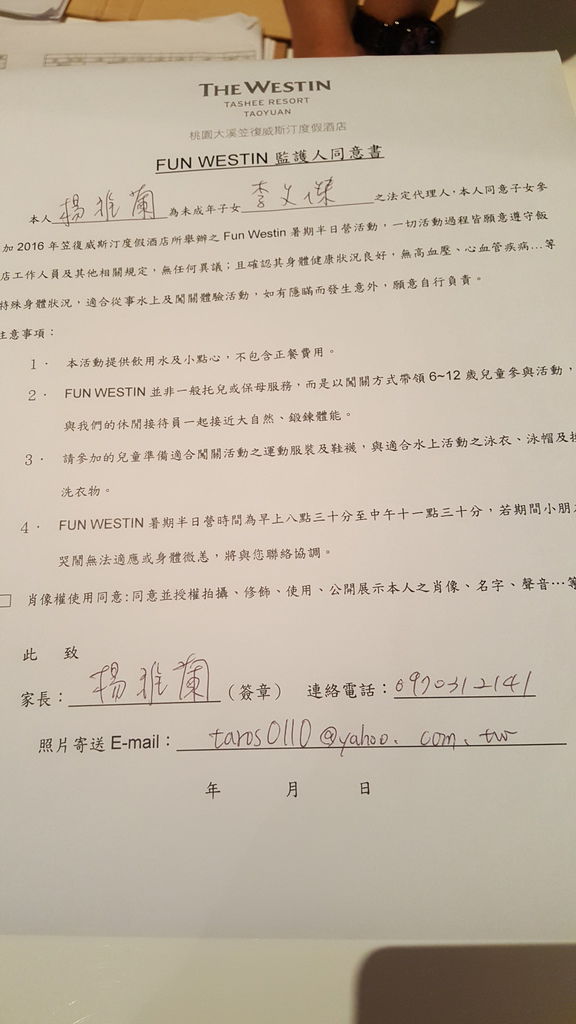 THE WESTIN
TASHEE RESORT
TAOYUAN
桃園大溪笠復威斯汀度假酒店
FUN WESTIN 監護人同意書
本人 楊雅蘭 為未成年子女 李文傑 之法定代理人,本人同意子女參
加 2016 年笠復威斯汀度假酒店所舉辦之 Fun Westin 暑期半日營活動,一切活動過程皆願意遵守飯
店工作人員及其他相關規定,無任何異議;且確認其身體健康狀況良好,無高血壓、心血管疾病…等
特殊身體狀況,適合從事水上及闖關體驗活動,如有隱瞞而發生意外,願意自行負責。
注意事項:
1. 本活動提供飲用水及小點心,不包含正餐費用。
2. FUN WESTIN 並非一般托兒或保母服務,而是以闖關方式帶領 6~12 歲兒童參與活動,
與我們的休閒接待員一起接近大自然、鍛鍊體能。
3. 請參加的兒童準備適合闖關活動之運動服裝及鞋襪,與適合水上活動之泳衣、泳帽及換
洗衣物。
4. FUN WESTIN 暑期半日營時間為早上八點三十分至中午十一點三十分,若期間小朋友
哭鬧無法適應或身體微恙,將與您聯絡協調。
□ 肖像權使用同意:同意並授權拍攝、修飾、使用、公開展示本人之肖像、名字、聲音…等
此 致
家長: 楊雅蘭 (簽章) 連絡電話: 0970312141
照片寄送 E-mail: taros0110@yahoo.com.tw
年 月 日